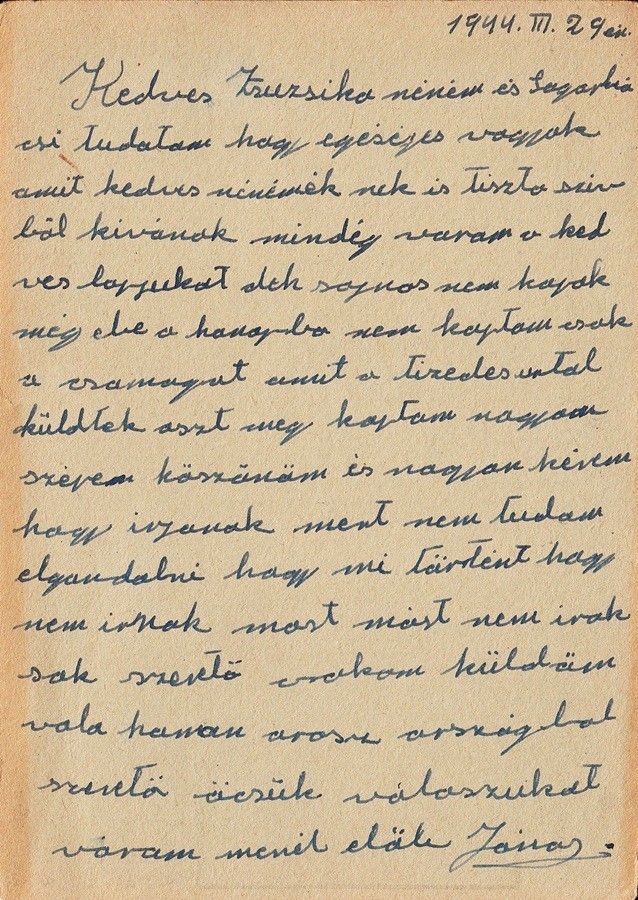 1944. III. 29én.
Kedves Zsuzsika néném és
csi tudatam hogy egéséges vagyok
amit kedves nénémék nek is tiszta sziv
ből kivánok mindég varam a ked
ves lapjukat deh sajnos nem kapok
még ebe a honapba nem kaptam csak
a csamagot amit a tizedesurtal
küldtek aszt meg kaptam nagyon
szépem köszönöm és nagyon kérem
hogy irjanak mert nem tudam
elgondalni hogy mi történt hogy
nem irnak most mást nem irok
sok szerető csokom küldöm
vala honan orosz országbol
szerető öcsük válaszukat
váram menél elöb János.